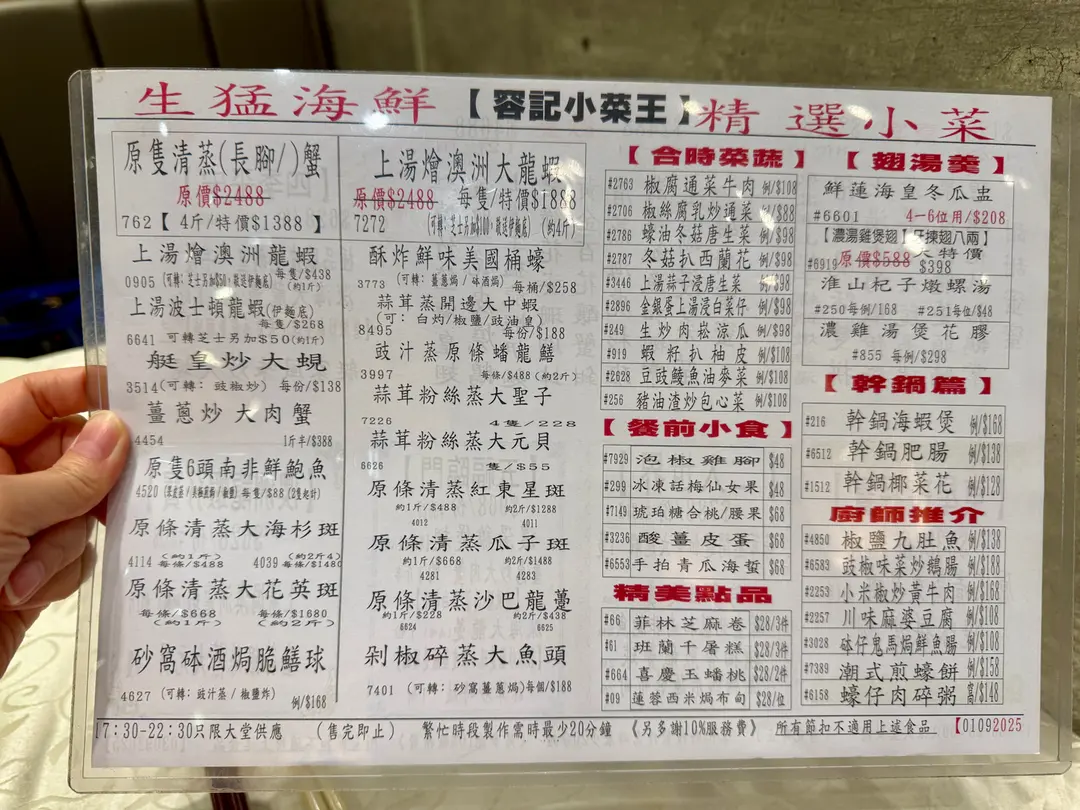 生猛海鮮【容記小菜王】精選小菜
原隻清蒸(長腳/)蟹
原價$2488
762【4斤/特價$1388】
上湯燴澳洲龍蝦
每隻/$438
0905(可轉:芝士另加$50,敬送伊麵底)(約1斤)
上湯波士頓龍蝦(伊麵底)
每隻/$268
6641 可轉芝士另加$50(約1斤)
艇皇炒大蜆
3514(可轉:豉椒炒) 每份/$138
薑蔥炒大肉蟹
4454 1斤半/$388
原隻6頭南非鮮鮑魚
4520 每隻/$88(2隻起計)
原條清蒸大海杉斑
(約1斤) (約2斤4)
4114 每條/$488 4039 每條/$1480
原條清蒸大花英斑
每條/$668 每條/$1680
(約1斤) (約2斤)
砂窩砵酒焗脆鱔球
4627 (可轉:豉汁蒸/椒鹽炸) 例/$168
上湯燴澳洲大龍蝦
原價$2488 每隻/特價$1888
7272 (可轉:芝士另加$100,敬送伊麵底) (約4斤)
酥炸鮮味美國桶蠔
3773 (可轉:薑蔥焗/砵酒焗) 每桶/$258
蒜茸蒸開邊大中蝦
(可:白灼/椒鹽/豉油皇)
8495 每份/$188
豉汁蒸原條蟠龍鱔
3997 每條/$488(約2斤)
蒜茸粉絲蒸大聖子
7226 4隻/228
蒜茸粉絲蒸大元貝
6626 隻/$55
原條清蒸紅東星斑
約1斤/$488 約2斤/$1288
4012 4011
原條清蒸瓜子斑
約1斤/$668 約2斤/$1488
4281 4283
原條清蒸沙巴龍躉
約1斤/$228 約2斤/$438
6624 6625
剁椒碎蒸大魚頭
7401 (可轉:砂窩薑蔥焗)每個/$188
【合時菜蔬】
#2763 椒腐通菜牛肉 例/$108
#2706 椒絲腐乳炒通菜 例/$88
#2786 蠔油冬菇唐生菜 例/$98
#2787 冬菇扒西蘭花 例/$98
#3446 上湯蒜子浸唐生菜 例/$98
#2896 金銀蛋上湯浸白菜仔 例/$98
#249 生炒肉崧涼瓜 例/$98
#919 蝦籽扒柚皮 例/$108
#2628 豆豉鯪魚油麥菜 例/$108
#256 豬油渣炒包心菜 例/$108
【餐前小食】
#7929 泡椒雞腳 $48
#299 冰凍話梅仙女果 $48
#7149 琥珀糖合桃/腰果 $68
#3236 酸薑皮蛋 $68
#6553 手拍青瓜海蜇 $68
精美點品
#66 菲林芝麻卷 $28/3件
#61 班蘭千層糕 $28/3件
#664 喜慶玉蟠桃 $28/2件
#09 蓮蓉西米焗布甸 $28/位
【翅湯羹】
鮮蓮海皇冬瓜盅
#6601 4-6位用/$208
【濃湯雞煲翅】牙揀翅八兩】
#6919 原價$588 大特價
$398
淮山杞子燉螺湯
#250每例/168 #251每位/$48
濃雞湯煲花膠
#855 每例/$298
【幹鍋篇】
#216 幹鍋海蝦煲 例/$168
#6512 幹鍋肥腸 例/$138
#1512 幹鍋椰菜花 例/$128
廚師推介
#4850 椒鹽九肚魚 例/$138
#6583 豉椒味菜炒鵝腸 例/$138
#2253 小米椒炒黃牛肉 例/$168
#2257 川味麻婆豆腐 例/$108
#3028 砵仔鬼馬焗鮮魚腸 例/$108
#7389 潮式煎蠔餅 例/$158
#6158 蠔仔肉碎粥 窩/$148
17:30-22:30只限大堂供應 (售完即止) 繁忙時段製作需時最少20分鐘 《另多謝10%服務費》 所有節扣不適用上述食品 【01092025